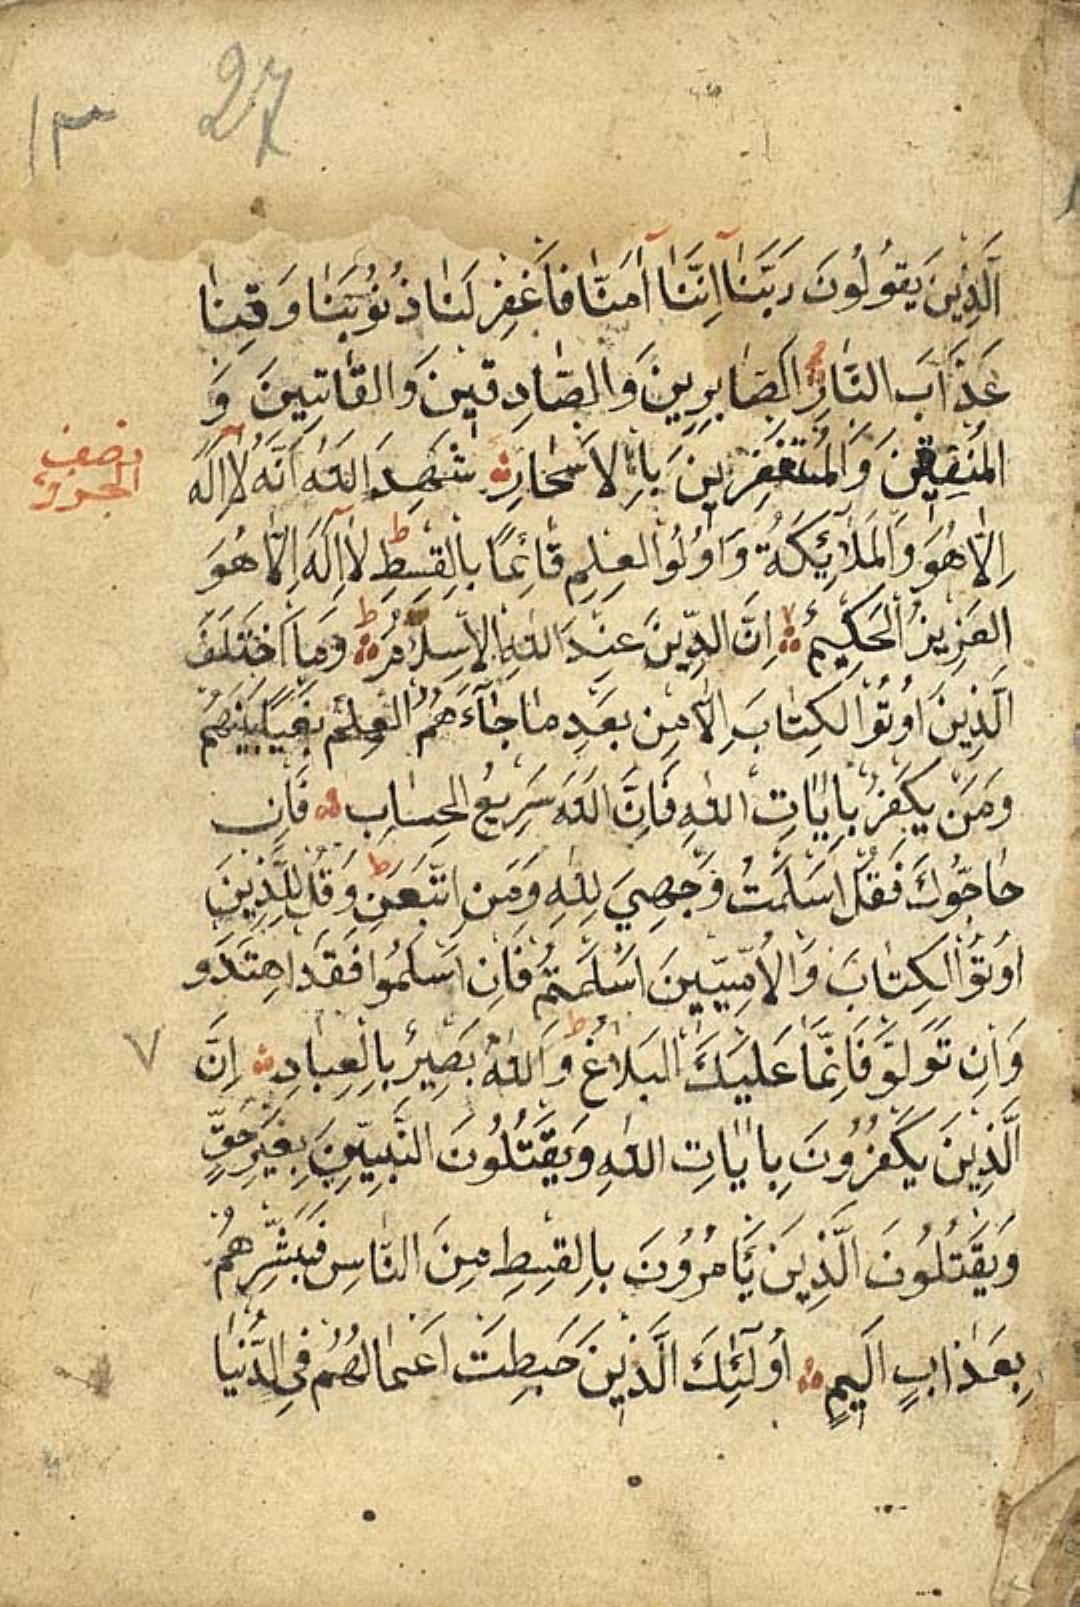 27
١٣
اَلَّذِينَ يَقُولُونَ رَبَّنَا اِنَّنَا اٰمَنَّا فَاغْفِرْ لَنَا ذُنُوبَنَا وَقِنَا
عَذَابَ النَّارِ اَلصَّابِرِينَ وَالصَّادِقِينَ وَالقَانِتِينَ وَ
المُنفِقِينَ وَالمُستَغفِرِينَ بِالاَسْحَارِ شَهِدَ اللهُ اَنَّهُ لَا اِلٰهَ
نصف
الجزو
اِلَّا هُوَ وَالمَلَائِكَةُ وَاُولُوا العِلمِ قَائِمًا بِالقِسطِ لَا اِلٰهَ اِلَّا هُوَ
العَزِيزُ الحَكِيمُ اِنَّ الدِّينَ عِندَ اللهِ الاِسلَامُ وَمَا اختَلَفَ
الَّذِينَ اُوتُوا الكِتَابَ اِلَّا مِن بَعدِ مَا جَآءَهُمُ العِلمُ بَغيًا بَينَهُم
وَمَن يَكفُر بِاٰيَاتِ اللهِ فَاِنَّ اللهَ سَرِيعُ الحِسَابِ فَاِن
حَاجُّوكَ فَقُل اَسلَمتُ وَجهِيَ لِلّٰهِ وَمَنِ اتَّبَعَنِ وَقُل لِلَّذِينَ
اُوتُوا الكِتَابَ وَالاُمِّيِّينَ اَسلَمتُم فَاِن اَسلَمُوا فَقَدِ اهتَدَو
٧
وَاِن تَوَلَّو فَاِنَّمَا عَلَيكَ البَلَاغُ وَاللهُ بَصِيرٌ بِالعِبَادِ اِنَّ
الَّذِينَ يَكفُرُونَ بِاٰيَاتِ اللهِ وَيَقتُلُونَ النَّبِيِّينَ بِغَيرِ حَقٍّ
وَيَقتُلُونَ الَّذِينَ يَأمُرُونَ بِالقِسطِ مِنَ النَّاسِ فَبَشِّرهُم
بِعَذَابٍ اَلِيمٍ اُولٰئِكَ الَّذِينَ حَبِطَت اَعمَالُهُم فِي الدُّنيَا